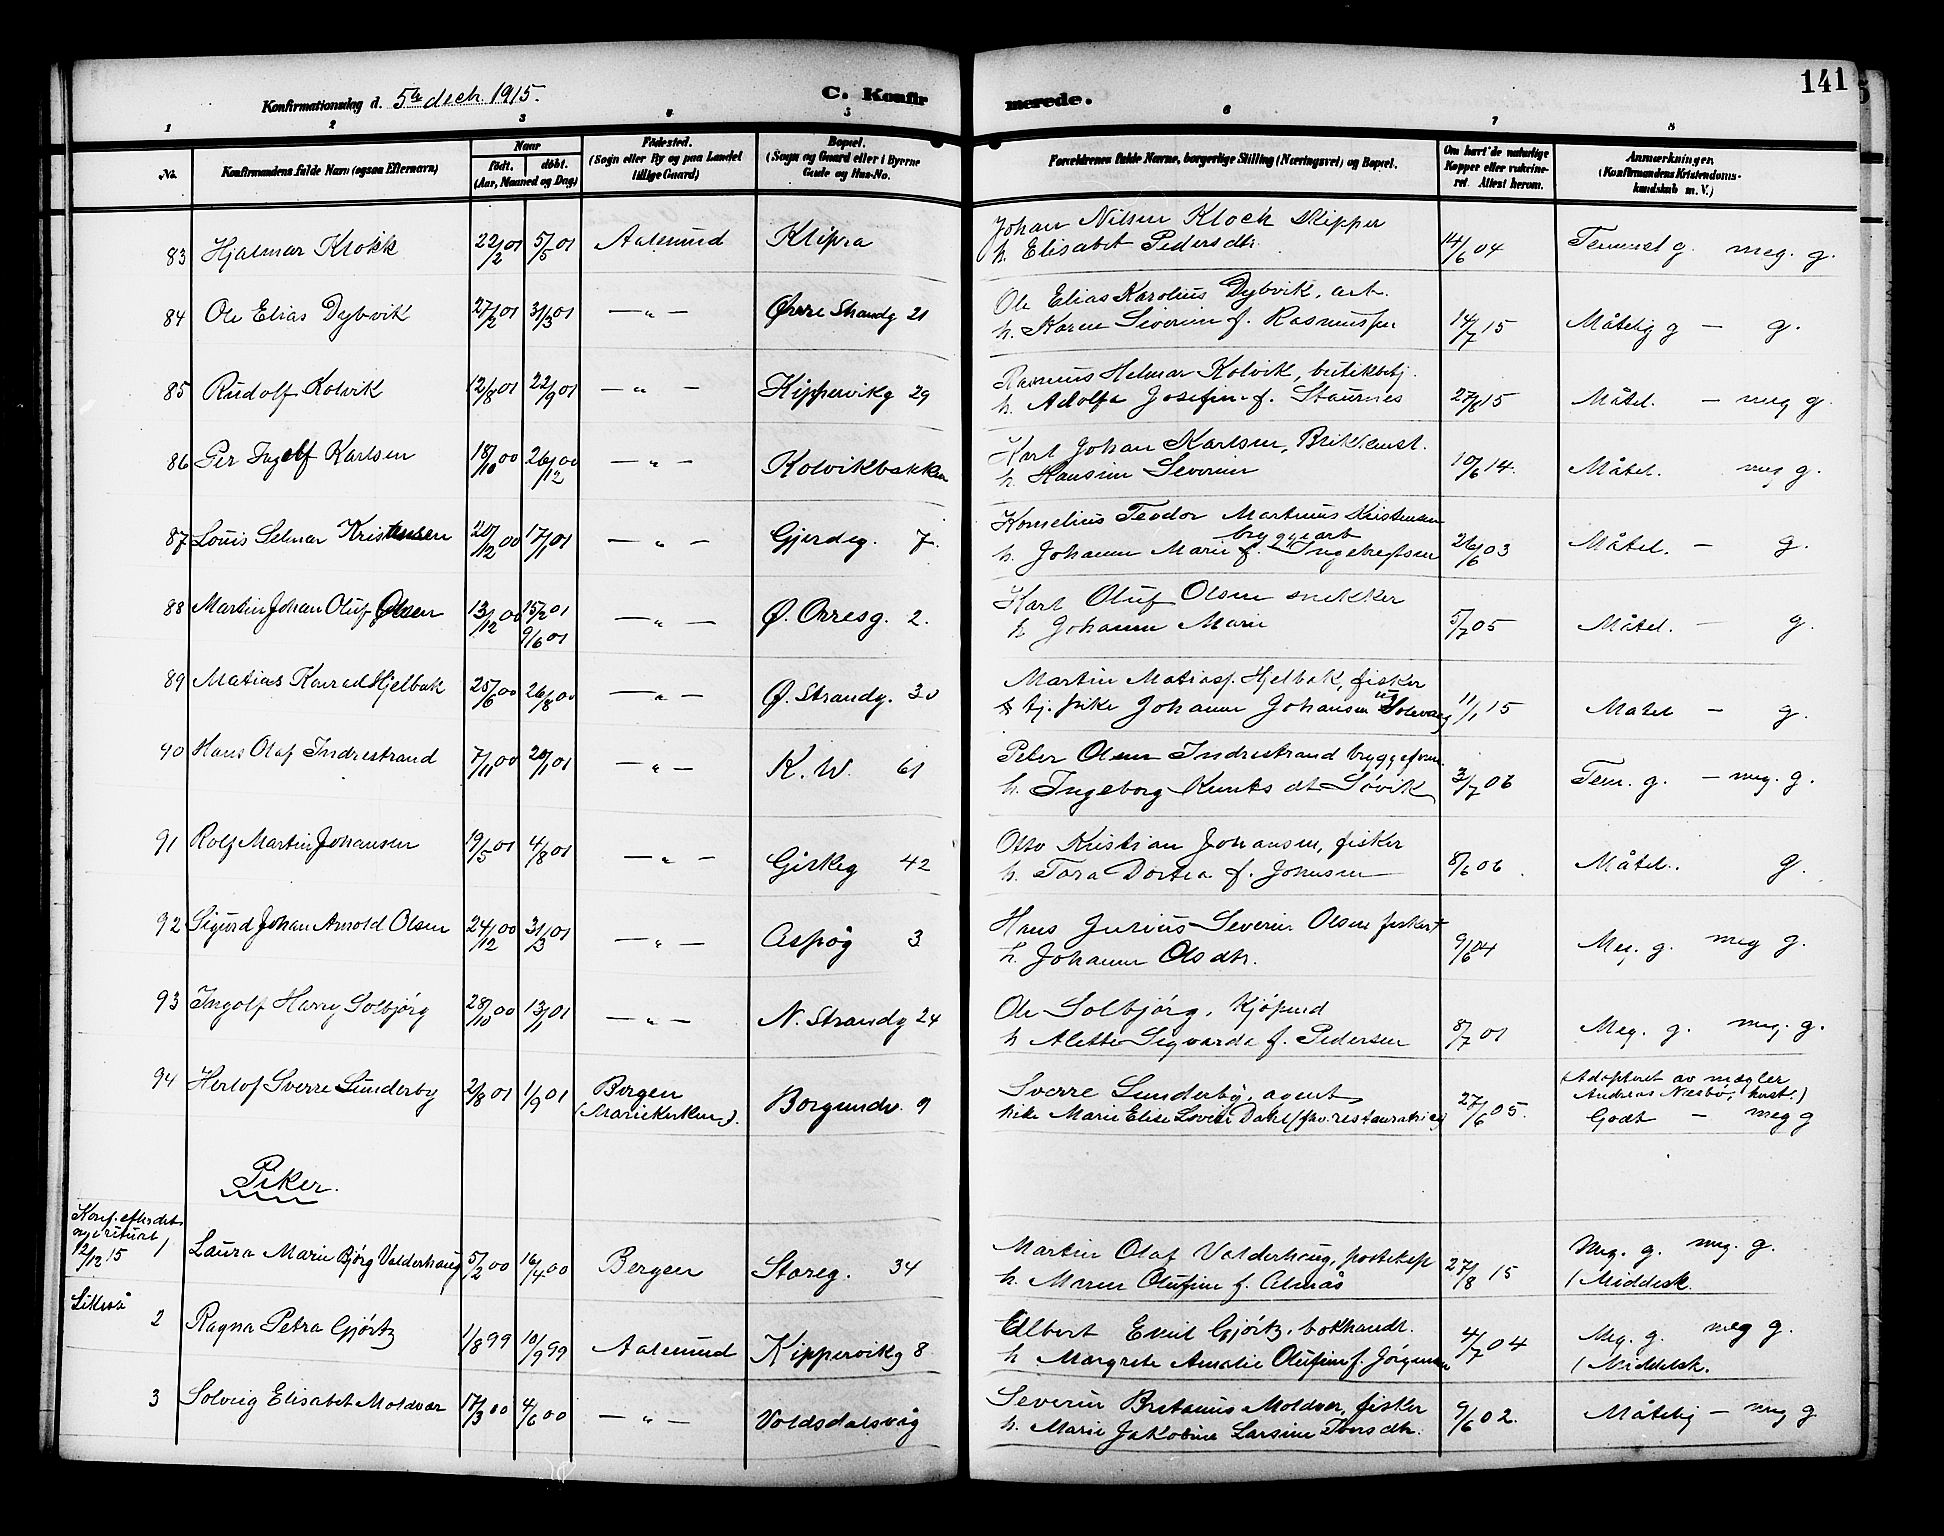 141
Konfirmationsdag d. 5te decb. 1915. C. Konfirmerede.
1 2 3 4 5 6 7 8
No. Konfirmandens fulde Navn (ogsaa Efternavn) Naar født. døbt. (Aar, Maaned og Dag) Fødested. (Sogn eller By og paa Landet tillige Gaard) Bopæl. (Sogn og Gaard eller i Byerne Gade og Hus-No. Forældrenes fulde Navne, borgerlige Stilling (Næringsvei) og Bopæl. Om havt de naturlige Kopper eller vaccineret. Attest herom. Anmærkninger. (Konfirmandens Kristendomskundskab m. V.)
Johan Nilsen Klock skipper
83 Hjalmar Klokk 22/2 01 5/5 01 Aalesund Klipra h. Elisabet Pedersdtr. 14/6 04 Temmel g. meg. g.
Ole Elias Karolius Dybvik, arb.
84 Ole Elias Dybvik 27/2 01 31/3 01 — " — Øvre Strandg 21 h. Karen Severine f. 14/7 15 Måtelig g — g.
Rasmus Helmar Kolvik, butikbetj.
85 Rudolf Kolvik 12/8 01 22/9 01 — " — Kippervikg 29 h. Adolfa Josefine f. Staurnes 27/8 15 Måtel. — meg g.
Karl Johan Karlsen,
86 Per Ingolf Karlsen 18/10 00 26/12 00 — " — Kolvikbakken h. Hansine Severine 10/6 14. Måtel. meg g.
Kornelius Teodor Martinus Kristensen
bryggearb
87 Louis Selmar Kristensen 20/12 00 17/1 01 — " — Gjerdeg. 7. h. Johanne Marie f. Ingebrigtsen 26/6 03 Måtel. — g.
Karl Oluf Olsen snekker
88 Martin Johan Oluf Olsen 13/12 00 15/2 01 9/6 01 — " — Ø. Orresg. 2. h Johanne Marie 5/7 05 Måtel. — g.
Martin Matiass. Hjelbak, fisker
89 Matias Konrad Hjelbak 25/6 00 26/8 00 — " — Ø. Strandg. 30 tj. pike Johanne Johansen 11/1 15 Måtel — g.
Peter Olsen Indrestrand bryggeform.
90 Hans Olaf Indrestrand 7/11 00 20/1 01 — " — K. W. 61 h. Ingeborg Knuts dt Søvik 3/7 06 Tem. g. — meg. g.
Otto Kristian Johansen, fisker
91 Rolf Martin Johansen 19/5 01 4/8 01 — " — Giskeg 42 h. Tora Dortea f. Johnsen 8/6 06 Måtel. g.
Hans Julius Severin Olsen fisker †
92 Sigurd Johan Arnold Olsen 24/12 00 31/3 01 — " — Aspøg 3 h. Johanne Olsdtr. 9/6 04 Meg. g. meg g.
Ole Solbjørg, Kjøpmd
93 Ingolf Harry Solbjørg 28/10 00 13/1 01 — " — N. Strandg 24 h Alette Sigvarda f. Pedersen 8/7 01 Meg. g. meg. g.
Sverre Lunderby, agent (Adopteret av mægler Andreas Næsbø, hust.)
94 Herlof Sverre Lunderby 2/8 01 1/9 01 Bergen (Mariekirken). Borgundv. 9 pike Marie Elise Lovise Dahl (fhv. restauratrice) 27/6 05. Godt — meg g
Piker.
Konf. efter det nye ritual 12/12 15
Martin Olaf Valderhaug, posteksp
1 Laura Marie Bjørg Valderhaug 5/2 00 16/4 00 Bergen Storeg. 34 h. Maren Olufine f. Almås 27/8 15 Meg. g. meg. g. / Middelsk.
Likeså
Elbert Emil Gjørtz, bokhandl.
2 Ragna Petra Gjørtz 1/8 99 10/9 99 Aalesund Kippervikg 8 h Margrete Amalie Olufine f. Jørgensen 4/7 04 Meg. g. meg g. / Middelsk.
Severin Bretanus Moldvær, fisker
3 Solveig Elisabet Moldvær 17/3 00 4/6 00 — " — Voldsdalsvåg h. Marie Jakobine Larsine Iversdtr. 9/6 02. Måtelig — meg g